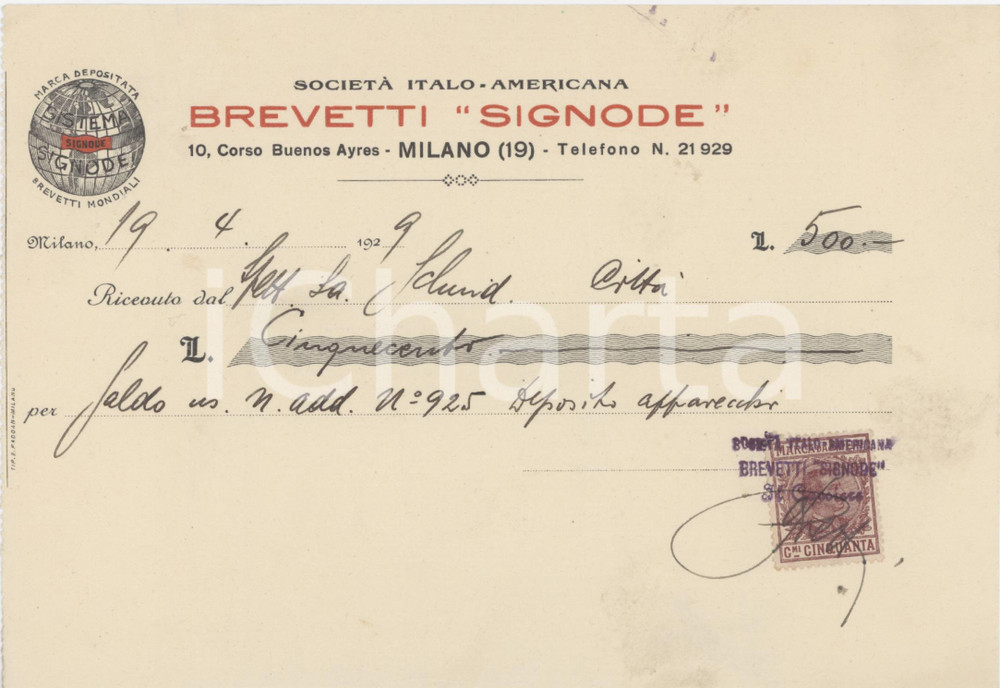 MARCA DEPOSITATA
SISTEMA
SIGNODE
SIGNODE
BREVETTI MONDIALI
SOCIETÀ ITALO-AMERICANA
BREVETTI "SIGNODE"
10, Corso Buenos Ayres - MILANO (19) - Telefono N. 21929
Milano, 19. 4. 1929 L. 500.-
Ricevuto dal Spett. Sa. Schmid. Città
L. Cinquecento
per Saldo ns. n. add. N° 925 Deposito apparecchi
SOCIETÀ ITALO-AMERICANA
BREVETTI "SIGNODE"
MARCA
CMI CINQUANTA
TIP. C. PADOAN-MILANO
iCharta